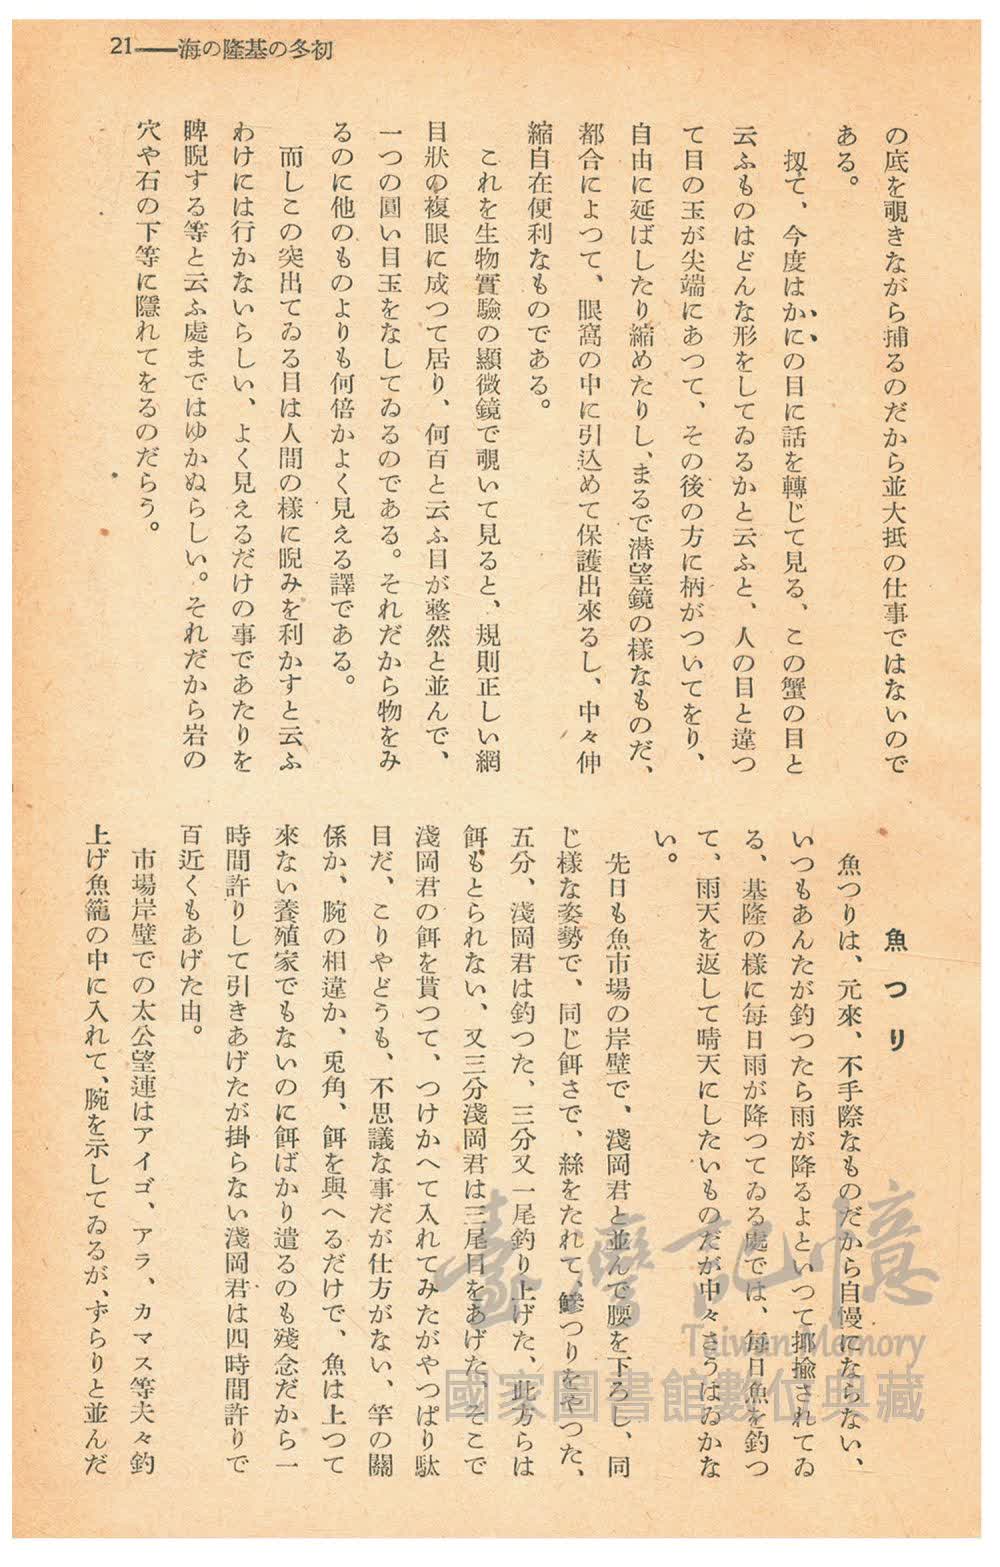 21――海の隆基の冬初
の底を覗きながら捕るのだから並大抵の仕事ではないので
ある。
扨て、今度はかにの目に話を轉じて見る、この蟹の目と
云ふものはどんな形をしてゐるかと云ふと、人の目と違つ
て目の玉が尖端にあつて、その後の方に柄がついてをり、
自由に延ばしたり縮めたりし、まるで潜望鏡の樣なものだ、
都合によつて、眼窩の中に引込めて保護出來るし、中々伸
縮自在便利なものである。
これを生物實驗の顯微鏡で覗いて見ると、規則正しい網
目狀の複眼に成つて居り、何百と云ふ目が整然と並んで、
一つの圓い目玉をなしてゐるのである。それだから物をみ
るのに他のものよりも何倍かよく見える譯である。
而しこの突出てゐる目は人間の樣に睨みを利かすと云ふ
わけには行かないらしい、よく見えるだけの事であたりを
睥睨する等と云ふ處まではゆかぬらしい。それだから岩の
穴や石の下等に隱れてをるのだらう。
魚つり
魚つりは、元來、不手際なものだから自慢にならない、
いつもあんたが釣つたら雨が降るよといつて揶揄されてゐ
る、基隆の樣に每日雨が降つてゐる處では、每日魚を釣つ
て、雨天を返して晴天にしたいものだが中々さうはゐかな
い。
先日も魚市場の岸壁で、淺岡君と並んで腰を下ろし、同
じ樣な姿勢で、同じ餌さで、絲をたれて、鰺つりをやつた、
五分、淺岡君は釣つた、三分又一尾釣り上げた、此方らは
餌もとられない、又三分淺岡君は三尾目をあげた、そこで
淺岡君の餌を貰つて、つけかへて入れてみたがやつぱり駄
目だ、こりやどうも、不思議な事だが仕方がない、竿の關
係か、腕の相違か、兎角、餌を與へるだけで、魚は上つて
來ない養殖家でもないのに餌ばかり遣るのも殘念だから一
時間許りして引きあげたが掛らない淺岡君は四時間許りで
百近くもあげた由。
市場岸壁での太公望連はアイゴ、アラ、カマス等夫々釣
上げ魚籠の中に入れて、腕を示してゐるが、ずらりと並んだ
臺灣記憶
Taiwan Memory
國家圖書館數位典藏